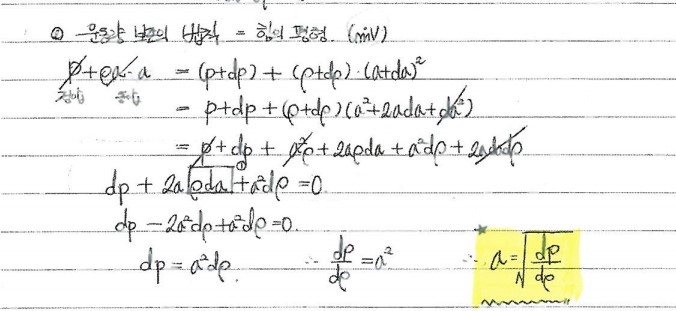 ② 운동량 보존의 법칙 = 힘의 평형 (ṁV)
p+ρa·a = (p+dp) + (ρ+dρ)·(a+da)²
정압 동압
= p+dp+(ρ+dρ)(a²+2ada+da²)
= p+dp + a²ρ+2aρda+a²dρ+2adadρ
①
dp + 2a ρda +a²dρ =0
dp -2a²dρ+a²dρ=0.
dp = a²dρ. ∴ dp/dρ =a² ∴ a=√(dp/dρ)